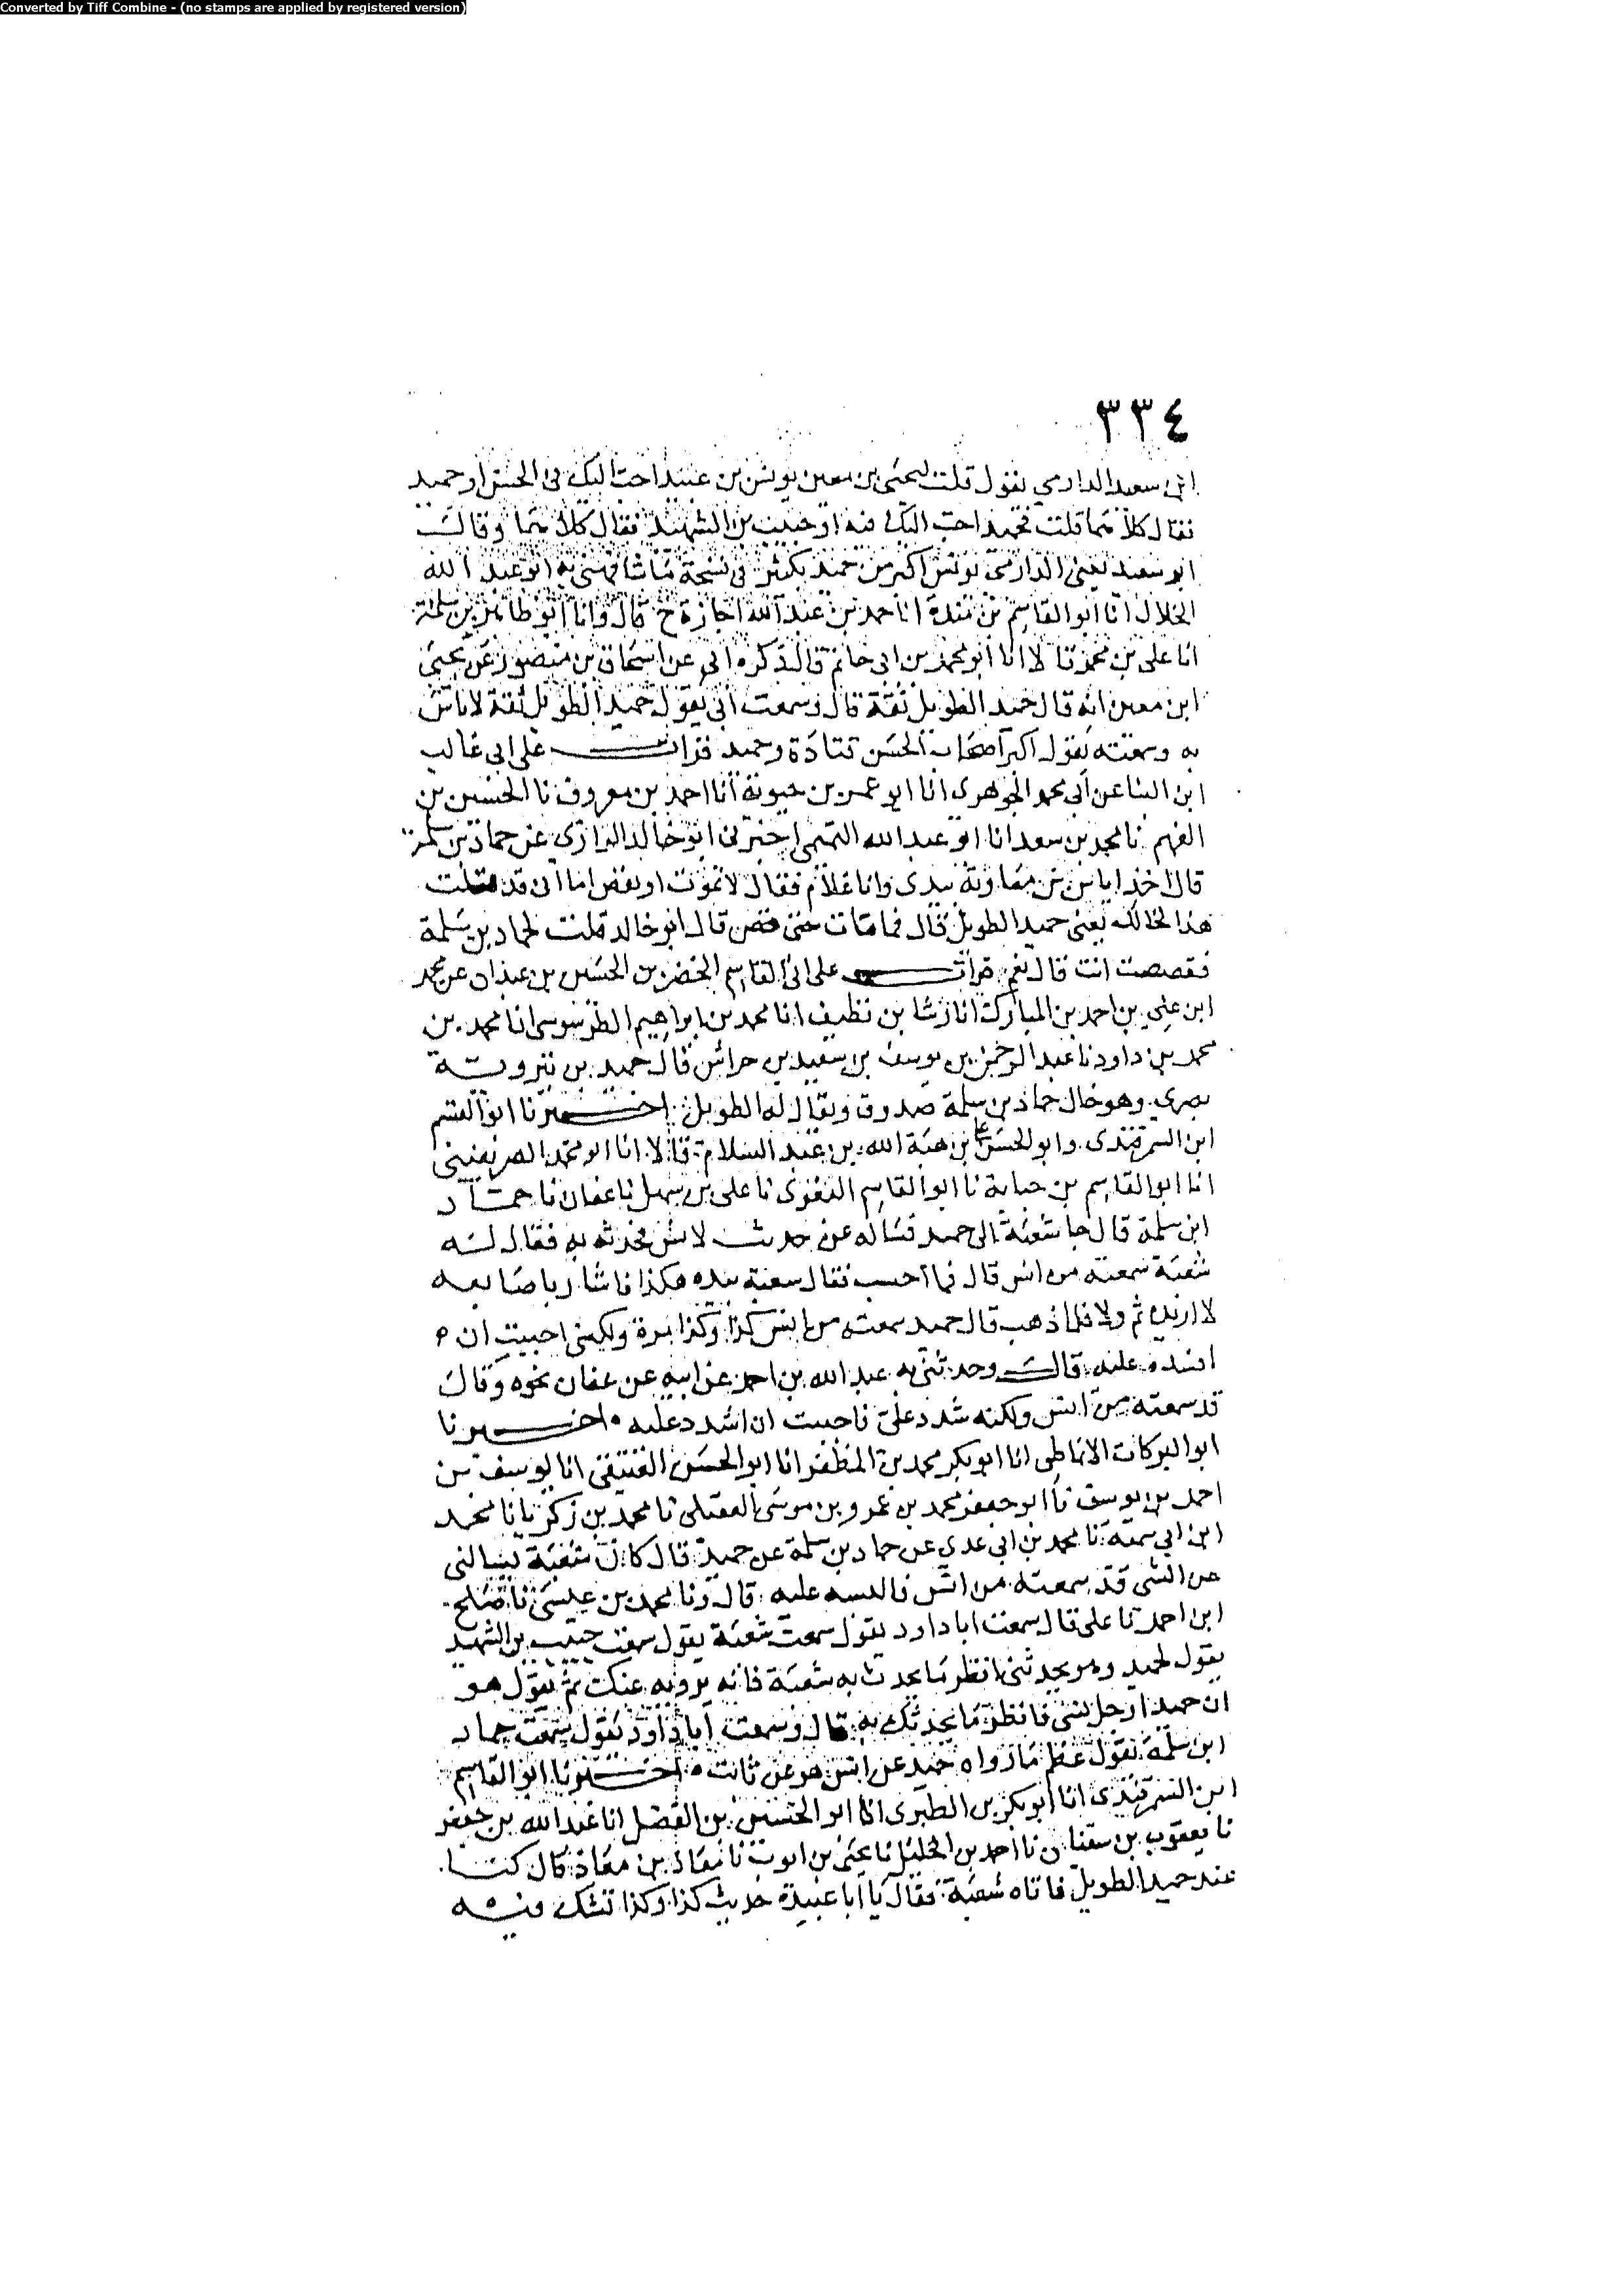 Converted by Tiff Combine - (no stamps are applied by registered version)
٣٣٤
ابن سعيد الدارمي يقول قلت ليحيى بن معين يونس بن عبيد احب اليك في الحسن او حميد
فقال كلاهما قلت فحميد احب اليك فيه او حبيب بن الشهيد فقال كلاهما وقال
ابو سعيد يعني الدارمي يونس اكبر من حميد بكثير في نسخة ما شافهني به ابو عبد الله
الخلال انا ابو القاسم بن مندة انا احمد بن عبد الله اجازة ح قال وانا ابو طاهر بن سلمة
انا علي بن محمد قالا انا ابو محمد بن ابي حاتم قال ذكره ابي عن اسحاق بن منصور عن يحيى
ابن معين انه قال حميد الطويل ثقة قال وسمعت ابي يقول حميد الطويل ثقة لا باس
به وسمعته يقول اكبر اصحاب الحسن قتادة وحميد قرات على ابي غالب
ابن البنا عن ابي محمد الجوهري انا ابو عمر بن حيوية انا احمد بن معروف نا الحسين بن
الفهم نا محمد بن سعد انا ابو عبد الله التميمي اخبرني ابو خالد الرازي عن حماد بن سلمة
قال اخذ اياس بن معاوية بيدي وانا غلام فقال لا تموت او تقص اما اني قد قلت
هذا لخالك يعني حميد الطويل قال فما مات حتى قص قال ابو خالد قلت لحماد بن سلمة
فقصصت انت قال نعم قرات على ابي القاسم الخضر بن الحسين بن عبدان عن محمد
ابن علي بن احمد بن المبارك انا رشا بن نظيف انا محمد بن ابراهيم الطرسوسي انا محمد بن
محمد بن داود نا عبد الرحمن بن يوسف بن سعيد بن خراش قال حميد بن تيروية
بصري وهو خال حماد بن سلمة صدوق ويقال له الطويل اخبرنا ابو القسم
ابن السمرقندي وابو الحسن علي بن هبة الله بن عبد السلام قالا انا ابو محمد الصريفيني
انا ابو القاسم بن حبابة نا ابو القاسم البغوي نا علي بن سهل نا عفان نا حماد
ابن سلمة قال جا شعبة الى حميد فساله عن حديث لانس فحدثه به فقال له
شعبة سمعته من انس قال فيما احسب فقال شعبة بيده هكذا فاشار باصابعه
لا اريده ثم ولا فلما ذهب قال حميد سمعته من انس كذا وكذا مرة ولكني احببت ان
اشدد عليه قال وحدثني به عبد الله بن احمد عن ابيه عن عفان نحوه وقال
قد سمعته من انس ولكنه شدد علي فاحببت ان اشدد عليه اخبرنا
ابو البركات الانماطي انا ابو بكر محمد بن المظفر انا ابو الحسن العتيقي انا يوسف بن
احمد بن يوسف نا ابو جعفر محمد بن عمرو بن موسى العقيلي نا محمد بن زكريا نا محمد
ابن ابي سمية نا محمد بن ابي عدي عن حماد بن سلمة عن حميد قال كان شعبة يسالني
عن الشي قد سمعته من انس فالبسه عليه قال ونا محمد بن عيسى نا صالح
ابن احمد نا علي قال سمعت ابا داود يقول سمعت شعبة يقول سمعت حبيب بن الشهيد
يقول لحميد وهو يحدثني انظر ما يحدث به شعبة فانه يرويه عنك ثم يقول هو
ان حميدا رجل نسي فانظر ما يحدثك به قال وسمعت ابا داود يقول سمعت حماد
ابن سلمة يقول عظم ما رواه حميد عن انس هو عن ثابت اخبرنا ابو القاسم
ابن السمرقندي انا ابو بكر بن الطبري انا ابو الحسين بن الفضل انا عبد الله بن جعفر
نا يعقوب بن سفيان نا احمد بن الخليل نا يحيى بن ايوب نا معاذ بن معاذ قال كنا
عند حميد الطويل فاتاه شعبة فقال يا ابا عبيدة حديث كذا وكذا تشك فيه